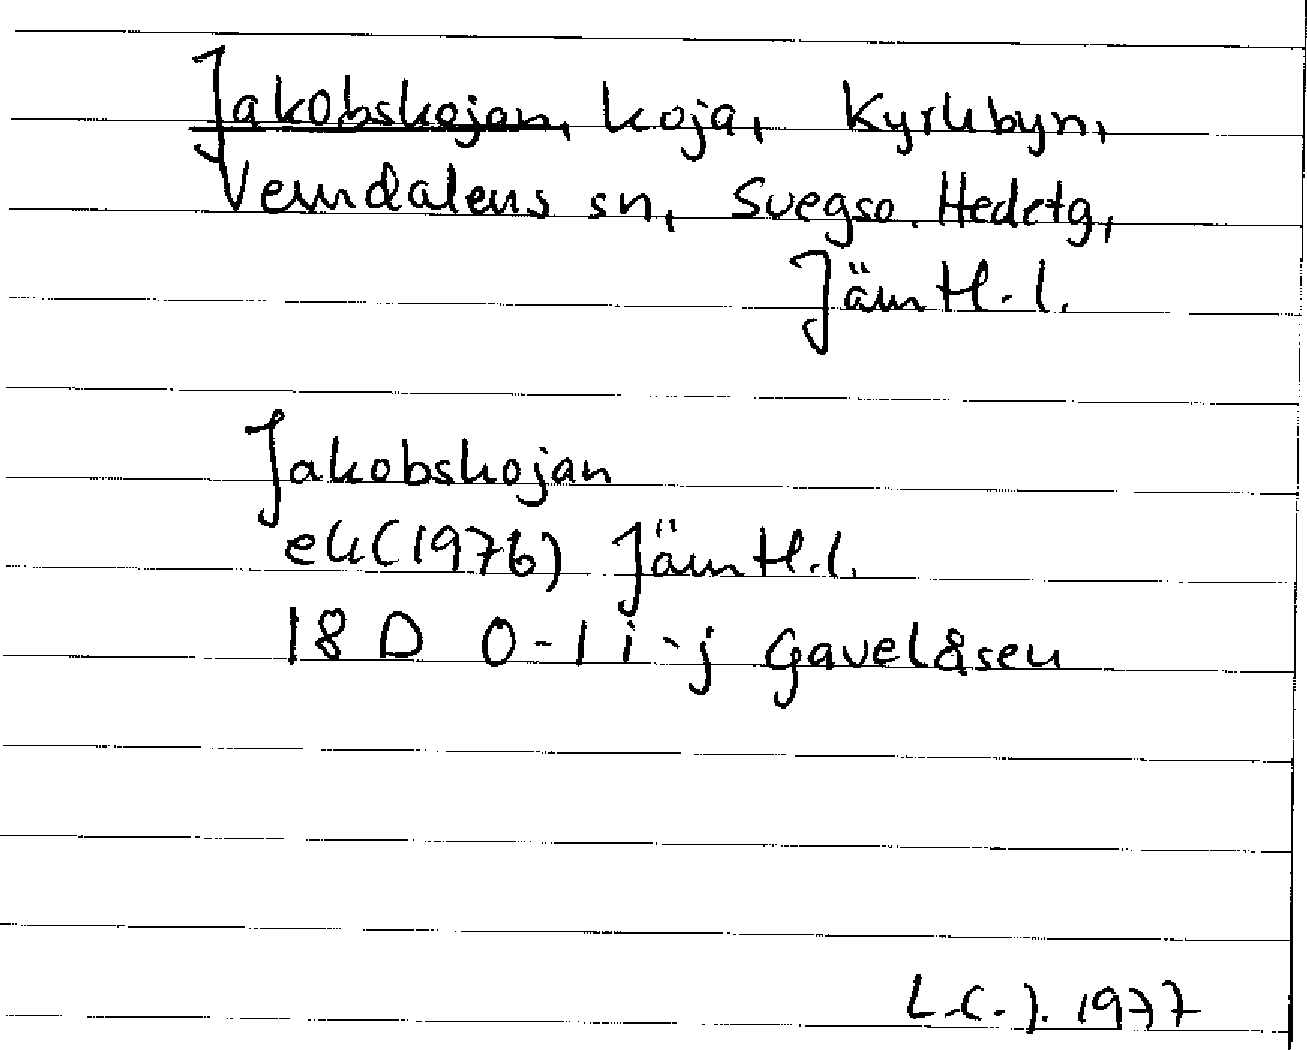 Jakobskojan, koja, Kyrkbyn,
Vemdalens sn, Svegs o. Hede tg,
Jämtl. l.
Jakobskojan
ek (1976) Jämtl. l.
18 D 0-1 i-j Gavelåsen
L.C.J. 1977